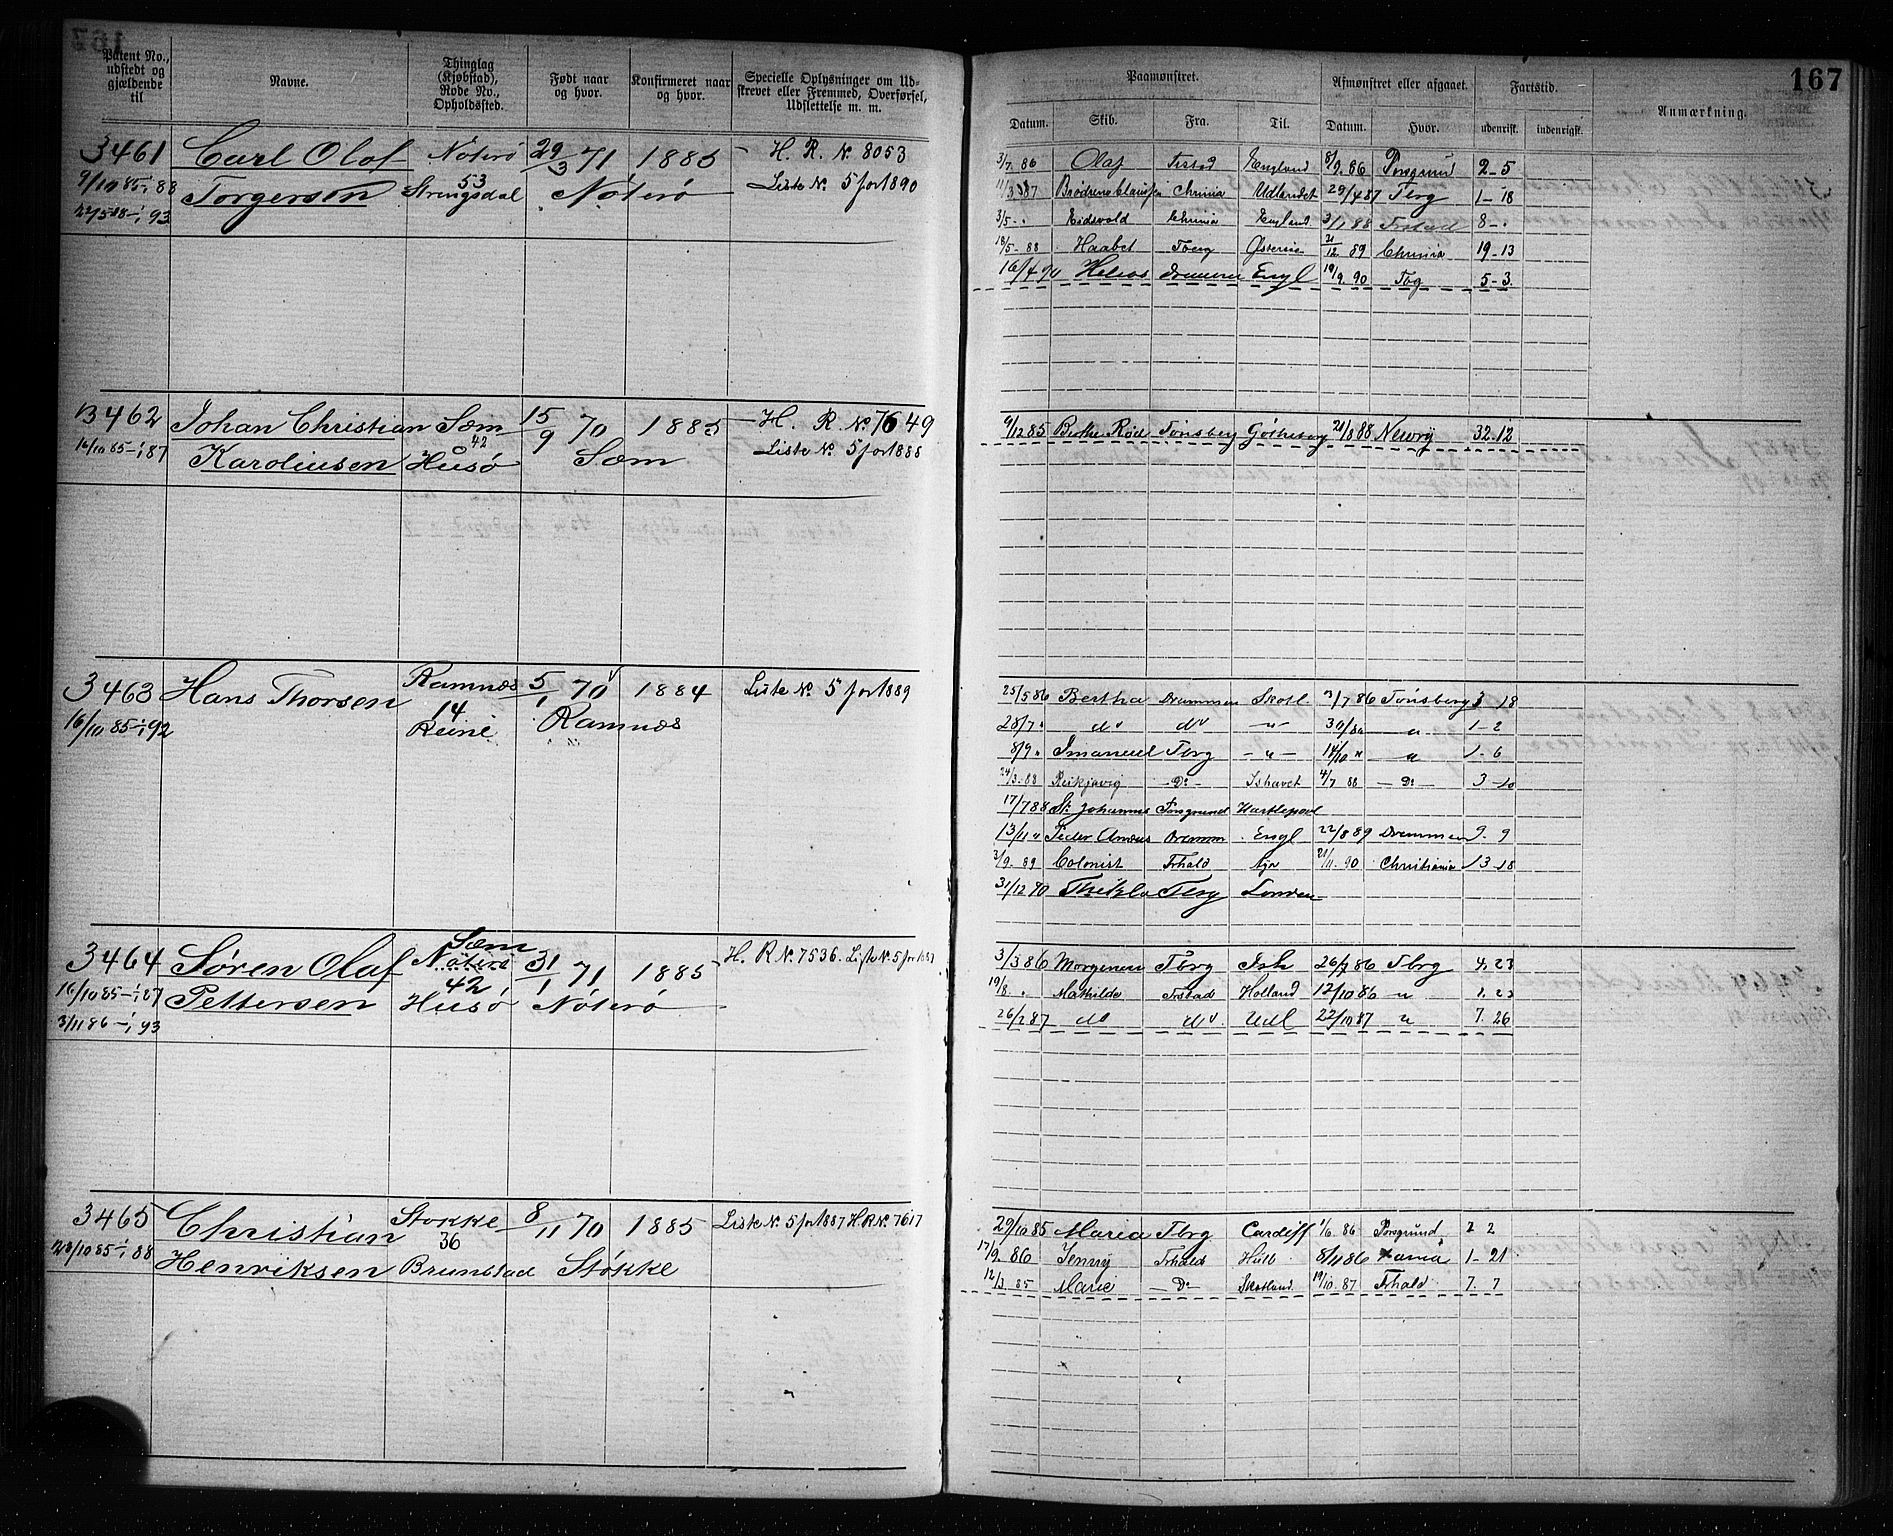 167
Patent No., udstedt og gjældende til
Navne.
Thinglag (Kjøbstad), Rode No., Opholdssted.
Født naar og hvor.
Konfirmeret naar og hvor.
Specielle Oplysninger om Udskrevet eller Fremmed, Overførsel, Udslettelse m. m.
Paamønstret.
Afmønstret eller afgaaet.
Fartstid.
Anmærkning.
Datum. Skib. Fra. Til. Datum. Hvor. udenrigsk. indenrigsk.
3461 Carl Olaf Nøterø 29/3 71 1885 H. R. N. 8053
9/10 85-1/1 88 Torgersen 53 Strengsdal Nøterø Liste No 5 for 1890
93
3/7 86 Olaf England 8/9 86 Porsgrund 2-5
87 Chrnia Udlandet 29/4 87 Tbrg 1-18
3/5 - Eidsvold Chrnia England 3/1 88 8-
18/5 88 Haabet Tbrg 21/12 89 Chrnia 19-13
16/4 90 Helios Drammen Engl 19/9 90 Tbg 5-3
3462 Johan Christian Sæm 15/9 70 1885 H. R. No 7649
16/10 85-1/1 87 Karoliusen 42 Husø Sæm Liste No 5 for 1888
9/12 85 Tønsberg Gøtheborg 21/8 88 Newry 32-12
3463 Hans Thorsen Ramnæs 5/1 70 1884 Liste No 5 for 1889
16/10 85-1/1 92 14 Reine Ramnæs
25/5 86 Bertha Drammen Skotl. 3/7 86 Tønsberg 18
28/7 " do do -"- 30/8 86 " 1-2
8/9 " Imanuel Tbrg -"- 14/10 " " 1-6
24/3 88 Reikjavig -Do- Ishavet 4/7 88 -Do- 3-10
17/7 88 St. Johannes Porsgrund Hartlepool
13/11 " Peder Dramm Engl 22/8 89 Drammen 9-9
2/9 89 Colonist Frhald 21/11 90 Christiania 13-18
31/12 90 Thekla Tbrg London
3464 Søren Olaf Sæm Nøterø 31/1 71 1885 H. R No. 7536. Liste No. 5 for 1887
16/10 85-1/1 87 Pettersen 42 Husø Nøterø
3/11 86-1/1 93
3/3 86 Morgenen Tbrg Ish 26/7 86 Tbrg 4. 23
19/8 " Mathilde Frstad Holland 12/10 86 " 1. 23
26/2 87 do do Udl 22/10 87 " 7. 26
3465 Christian Stokke 8/11 70 1885 Liste No. 5 for 1887 H.R No. 7617
28/10 85-1/1 88 Henriksen 36 Brunstad Støkke
29/10 85 Maria Tbrg Cardiff 1/6 86 Porsgrund 2 2
17/9 86 Jenny Frhald 8/11 86 Xania 1-21
12/3 85 Marie -Do Skotland 19/10 87 Frhald 7. 7